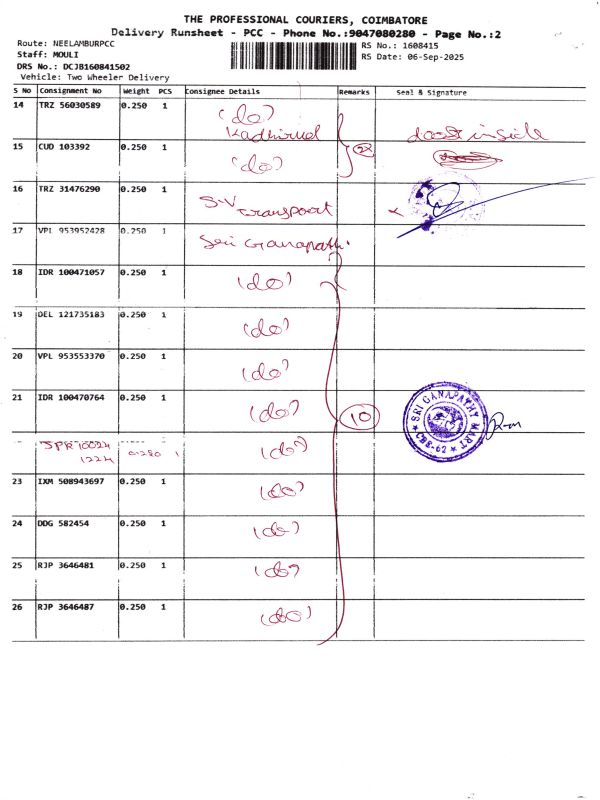 THE PROFESSIONAL COURIERS, COIMBATORE
Delivery Runsheet - PCC - Phone No.:9047080280 - Page No.:2
Route: NEELAMBURPCC
Staff: MOULI
DRS No.: DCJB160841502
Vehicle: Two Wheeler Delivery
RS No.: 1608415
RS Date: 06-Sep-2025
S No Consignment No Weight PCS Consignee Details Remarks Seal & Signature
14 TRZ 56030589 0.250 1 (do)
Kadhirvel
15 CUD 103392 0.250 1 (do)
16 TRZ 31476290 0.250 1 S.V
transpoort
17 VPL 953952428 0.250 1 Seri Ganapathi.
18 IDR 100471057 0.250 1 (do)
19 DEL 121735183 0.250 1 (do)
20 VPL 953553370 0.250 1 (do)
21 IDR 100470764 0.250 1 (do) 10
SRI GANAPATHY MART
CBE-62
SPR 10024
1224 0.250 1 (do)
23 IXM 508943697 0.250 1 (do)
24 DDG 582454 0.250 1 (do)
25 RJP 3646481 0.250 1 (do)
26 RJP 3646487 0.250 1 (do)